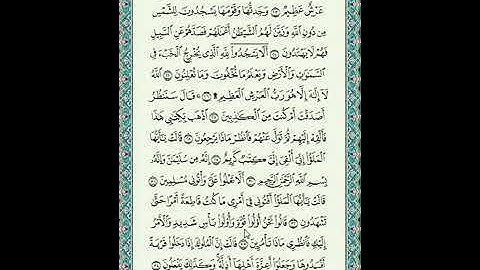 عَرْشٌ عَظِيمٌ ٢٣ وَجَدتُّهَا وَقَوْمَهَا يَسْجُدُونَ لِلشَّمْسِ
مِن دُونِ ٱللَّهِ وَزَيَّنَ لَهُمُ ٱلشَّيْطَٰنُ أَعْمَٰلَهُمْ فَصَدَّهُمْ عَنِ ٱلسَّبِيلِ
فَهُمْ لَا يَهْتَدُونَ ٢٤ أَلَّا يَسْجُدُوا۟ لِلَّهِ ٱلَّذِى يُخْرِجُ ٱلْخَبْءَ فِى
ٱلسَّمَٰوَٰتِ وَٱلْأَرْضِ وَيَعْلَمُ مَا تُخْفُونَ وَمَا تُعْلِنُونَ ٢٥ ٱللَّهُ
لَآ إِلَٰهَ إِلَّا هُوَ رَبُّ ٱلْعَرْشِ ٱلْعَظِيمِ ۩ ٢٦ قَالَ سَنَنظُرُ
أَصَدَقْتَ أَمْ كُنتَ مِنَ ٱلْكَٰذِبِينَ ٢٧ ٱذْهَب بِّكِتَٰبِى هَٰذَا
فَأَلْقِهْ إِلَيْهِمْ ثُمَّ تَوَلَّ عَنْهُمْ فَٱنظُرْ مَاذَا يَرْجِعُونَ ٢٨ قَالَتْ يَٰٓأَيُّهَا
ٱلْمَلَؤُا۟ إِنِّىٓ أُلْقِىَ إِلَىَّ كِتَٰبٌ كَرِيمٌ ٢٩ إِنَّهُۥ مِن سُلَيْمَٰنَ وَإِنَّهُۥ
بِسْمِ ٱللَّهِ ٱلرَّحْمَٰنِ ٱلرَّحِيمِ ٣٠ أَلَّا تَعْلُوا۟ عَلَىَّ وَأْتُونِى مُسْلِمِينَ ٣١
قَالَتْ يَٰٓأَيُّهَا ٱلْمَلَؤُا۟ أَفْتُونِى فِىٓ أَمْرِى مَا كُنتُ قَاطِعَةً أَمْرًا حَتَّىٰ
تَشْهَدُونِ ٣٢ قَالُوا۟ نَحْنُ أُو۟لُوا۟ قُوَّةٍ وَأُو۟لُوا۟ بَأْسٍ شَدِيدٍ وَٱلْأَمْرُ
إِلَيْكِ فَٱنظُرِى مَاذَا تَأْمُرِينَ ٣٣ قَالَتْ إِنَّ ٱلْمُلُوكَ إِذَا دَخَلُوا۟ قَرْيَةً
أَفْسَدُوهَا وَجَعَلُوٓا۟ أَعِزَّةَ أَهْلِهَآ أَذِلَّةً وَكَذَٰلِكَ يَفْعَلُونَ ٣٤